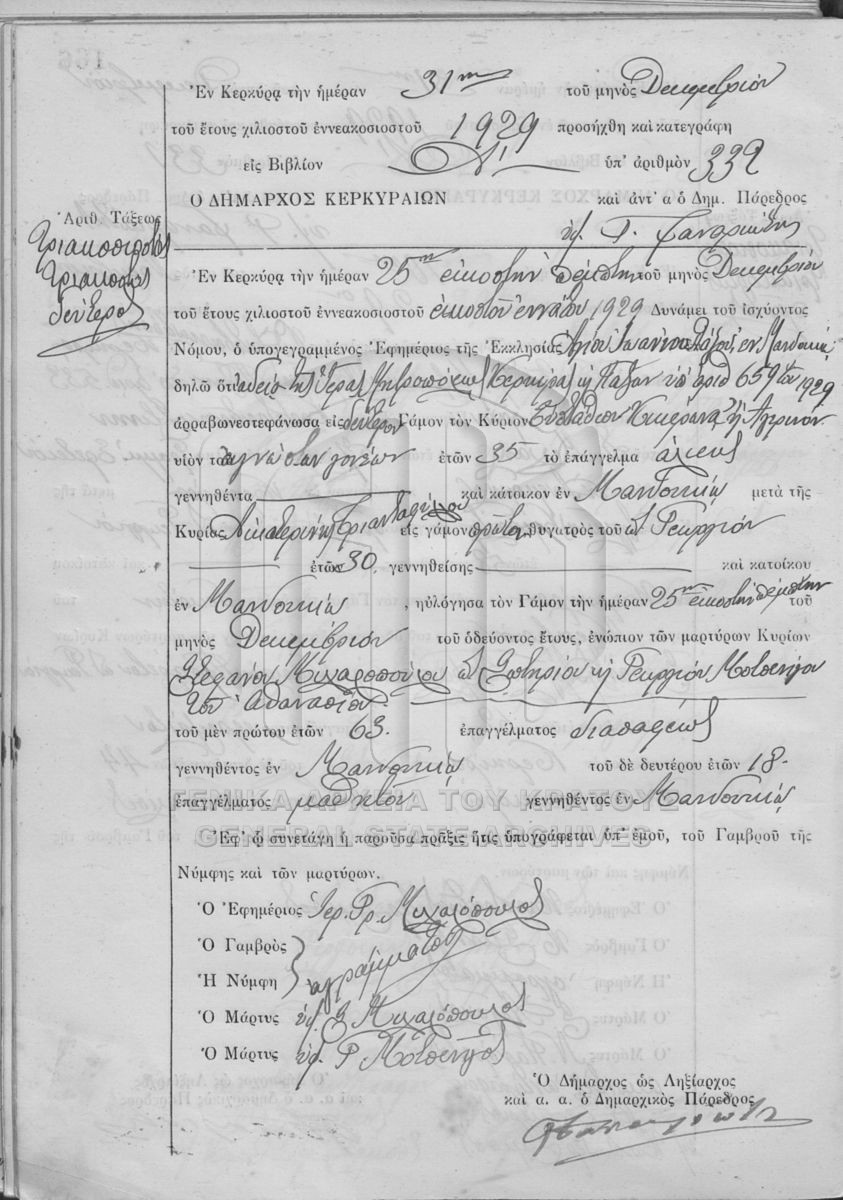 Ἐν Κερκύρᾳ τὴν ἡμέραν 31ην τοῦ μηνὸς Δεκεμβρίου
τοῦ ἔτους χιλιοστοῦ ἐννεακοσιοστοῦ 1929 προσήχθη καὶ κατεγράφη
εἰς Βιβλίον Δ' ὑπ' ἀριθμὸν 332
Ο ΔΗΜΑΡΧΟΣ ΚΕΡΚΥΡΑΙΩΝ καὶ ἀντ' α ὁ Δημ. Πάρεδρος
Ἀριθ. Τάξεως
τριακοσιοστὸς
τριακοστὸς
δεύτερος
Ἐν Κερκύρᾳ τὴν ἡμέραν 25ην εἰκοστὴν πέμπτην τοῦ μηνὸς Δεκεμβρίου
τοῦ ἔτους χιλιοστοῦ ἐννεακοσιοστοῦ εἰκοστοῦ ἐννάτου 1929 Δυνάμει τοῦ ἰσχύοντος
Νόμου, ὁ ὑπογεγραμμένος Ἐφημέριος τῆς Ἐκκλησίας Ἁγίου Ἰωάννου ἐν Μανδουκίῳ
δηλῶ ὅτι ἀδείᾳ τῆς Ἱερᾶς Μητροπόλεως Κερκύρας κ Παξῶν ὑπ ἀριθ 659 1929
ἀρραβωνεστεφάνωσα εἰς δεύτερον Γάμον τὸν Κύριον Εὐστάθιον
υἱὸν τοῦ ἀγνώστων γονέων ἐτῶν 35 τὸ ἐπάγγελμα ἁλιεὺς
γεννηθέντα καὶ κάτοικον ἐν Μανδουκίῳ μετὰ τῆς
Κυρίας Αἰκατερίνης Τριανταφύλλου εἰς γάμον πρῶτον θυγατρὸς τοῦ Γεωργίου
ἐτῶν 30, γεννηθείσης καὶ κατοίκου
ἐν Μανδουκίῳ, ηὐλόγησα τὸν Γάμον τὴν ἡμέραν 25ην εἰκοστὴν πέμπτην τοῦ
μηνὸς Δεκεμβρίου τοῦ ὁδεύοντος ἔτους, ἐνώπιον τῶν μαρτύρων Κυρίων
Στεφάνου Μιχαλοπούλου Σωτηρίου κ Γεωργίου
τοῦ Ἀθανασίου
τοῦ μὲν πρώτου ἐτῶν 63. ἐπαγγέλματος
γεννηθέντος ἐν Μανδουκίῳ τοῦ δὲ δευτέρου ἐτῶν 18-
ἐπαγγέλματος μαθητοῦ γεννηθέντος ἐν Μανδουκίῳ
ΓΕΝΙΚΑ ΑΡΧΕΙΑ ΤΟΥ ΚΡΑΤΟΥΣ
GENERAL STATE ARCHIVES
Ἐφ' ᾧ συνετάγη ἡ παροῦσα πρᾶξις ἥτις ὑπογράφεται ὑπ' ἐμοῦ, τοῦ Γαμβροῦ τῆς
Νύμφης καὶ τῶν μαρτύρων.
Ὁ Ἐφημέριος Ἱερ. Γρ. Μιχαλόπουλος
Ὁ Γαμβρὸς
ἀγράμματοι
Ἡ Νύμφη
Ὁ Μάρτυς Σ Μιχαλόπουλος
Ὁ Μάρτυς Γ
Ὁ Δήμαρχος ὡς Ληξίαρχος
καὶ α. α. ὁ Δημαρχικὸς Πάρεδρος